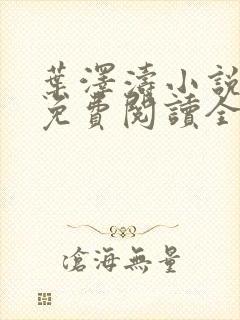 葉澤濤小說
免費閱讀全
滄海無量